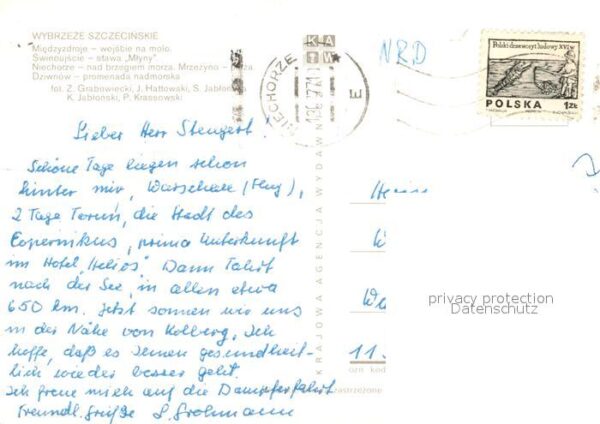 WYBRZEŻE SZCZECIŃSKIE
Międzyzdroje – wejście na molo.
Świnoujście – stawa „Młyny"
Niechorze – nad brzegiem morza. Mrzeżyno –
Dziwnów – promenada nadmorska
fot. Z. Grabowiecki, J. Hattowski, S. Jabłoński
K. Jabłoński, P. Krassowski
KAW
NIECHORZE
E
NRD
Polski drzeworyt ludowy XVI w.
POLSKA 1 ZŁ
Lieber Herr Stengert!
Schöne Tage liegen schon
hinter mir, Warschau (Flug),
2 Tage Toruń, die Stadt des
Copernikus, prima Unterkunft
im Hotel „Helios". Dann Fahrt
nach der See, in allen etwa
650 km. Jetzt sonnen wir uns
in der Nähe von Kolberg. Ich
hoffe, daß es Ihnen gesundheit-
lich wieder besser geht.
Ich freue mich auf die Dampferfahrt
Freundl. Grüße L. Grohmann
KRAJOWA AGENCJA WYDAWN
11.
privacy protection
Datenschutz